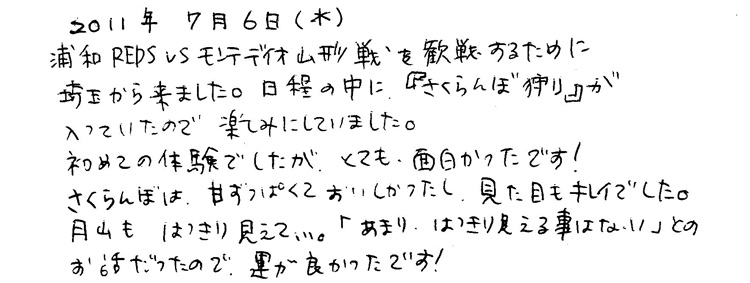 2011年 7月6日(水)
浦和REDS VS モンテディオ山形戦を歓戦するために
埼玉から来ました。日程の中に、『さくらんぼ狩り』が
入っていたので 楽しみにしていました。
初めての体験でしたが、とても、面白かったです!
さくらんぼは、甘ずっぱくて おいしかったし、見た目もキレイでした。
月山も はっきり見えて…。「あまり、はっきり見える事はない」との
お話だったので、運が良かったです!